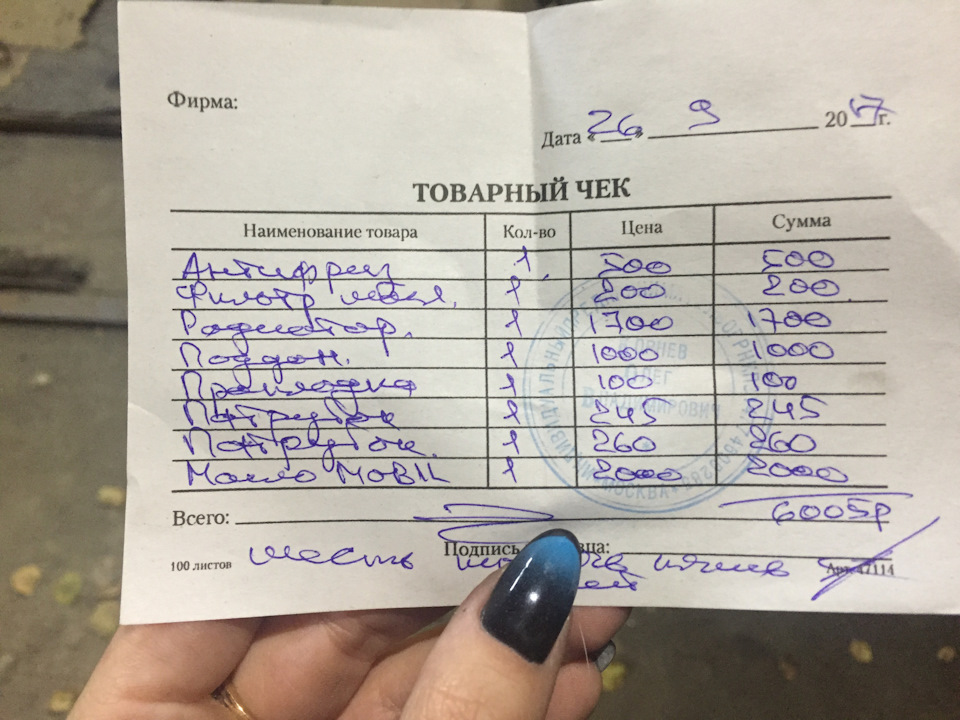 Фирма:
Дата «26» 9 2017г.
ТОВАРНЫЙ ЧЕК
Наименование товара Кол-во Цена Сумма
Антифриз 1 500 500
Фильтр масл. 1 200 200
Радиатор. 1 1700 1700
Поддон. 1 1000 1000
Прокладка 1 100 100
Патрубок 1 245 245
Патрубок. 1 260 260
Масло МОВIL 1 2000 2000
ОЛЕГ
ВЛАДИМИРОВИЧ
МОСКВА
Всего: 6005р
Подпись
100 листов шесть Арт. 47114